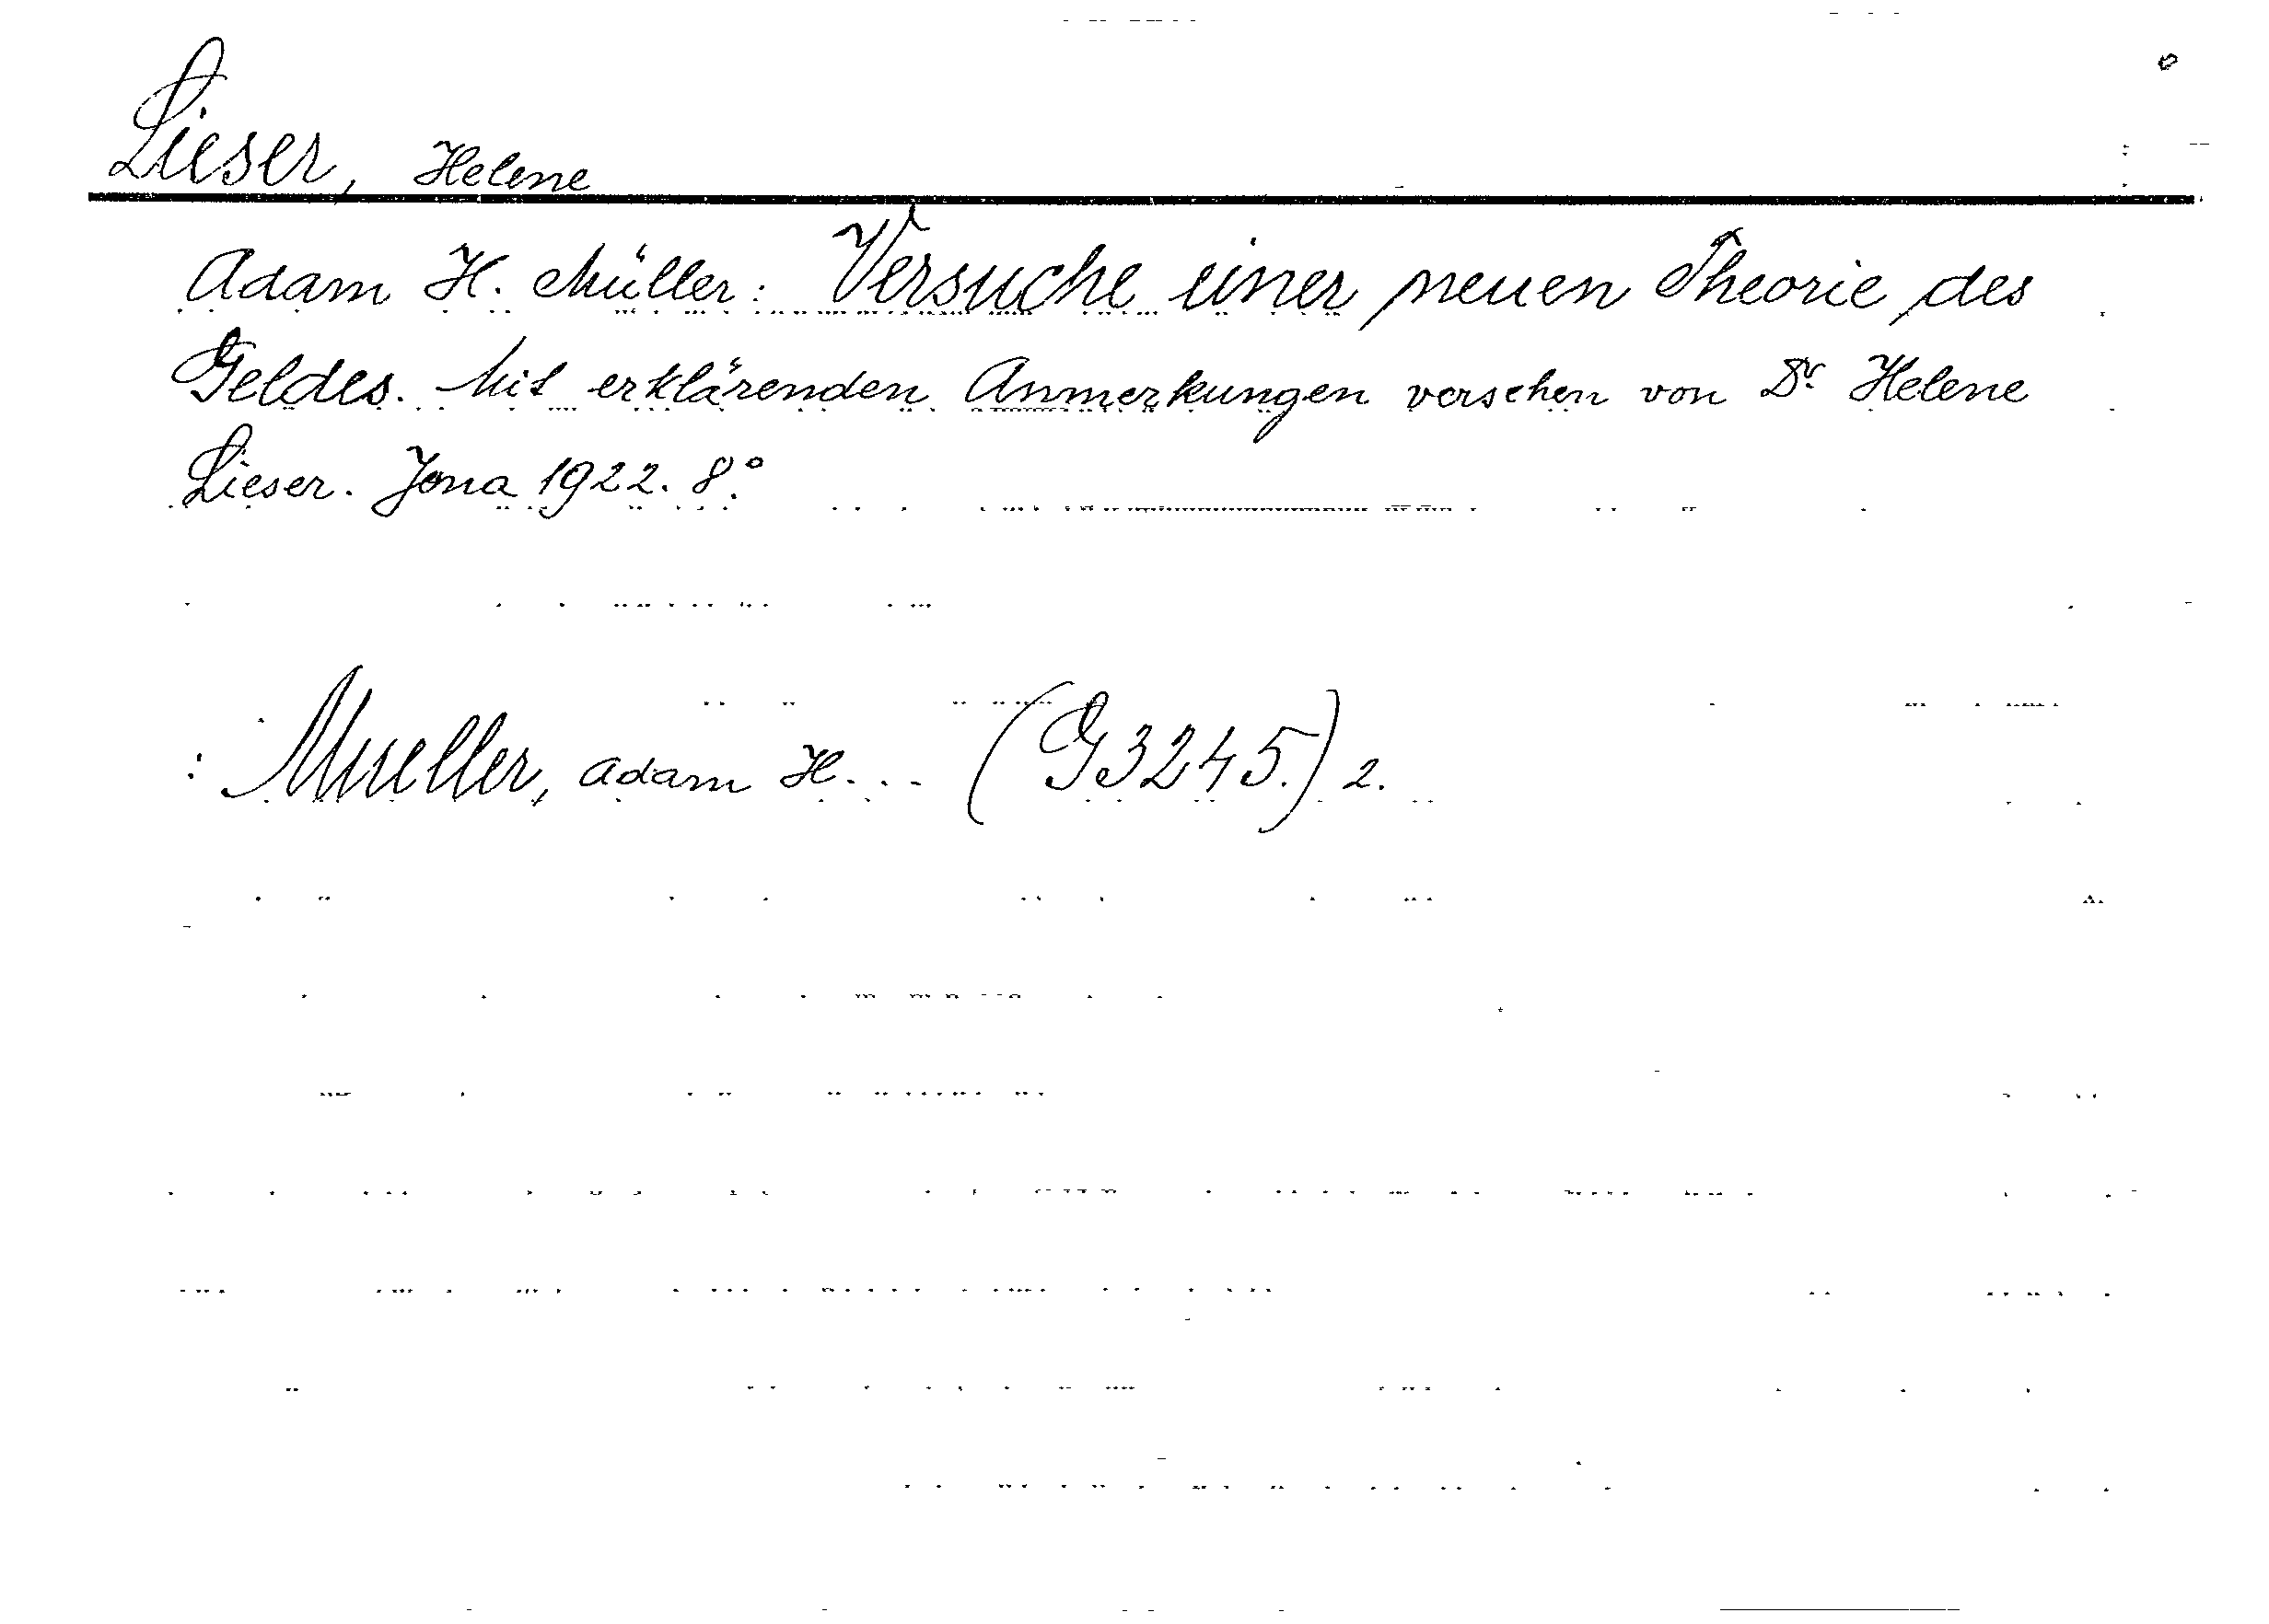 Lieser, Helene
Adam H. Müller: Versuche einer neuen Theorie des
Geldes. Mit erklärenden Anmerkungen versehen von Dr Helene
Lieser. Jena 1922. 8°.
: Mueller, Adam H... (G3245.) 2.